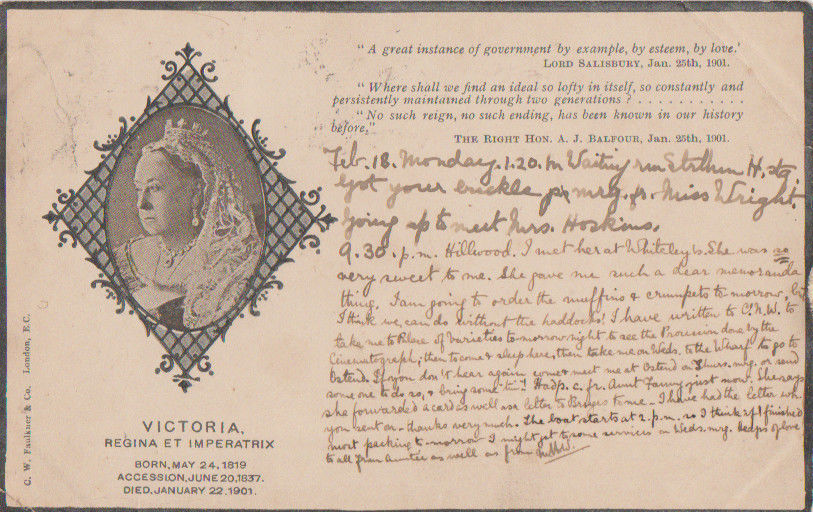 "A great instance of government by example, by esteem, by love.'
LORD SALISBURY, Jan. 25th, 1901.
"Where shall we find an ideal so lofty in itself, so constantly and
persistently maintained through two generations? . . . . . . . . . . . .
"No such reign, no such ending, has been known in our history
before,"
THE RIGHT HON. A. J. BALFOUR, Jan. 25th, 1901.
Feb. 18. Monday. 1.20. In Waiting rm H. stq.
Got your buckle mrg. fr. Miss Wright.
Going up to meet Mrs. Hoskins.
9.30. p.m. Hillwood. I met her at Whiteley's. She was so
very sweet to me. She gave me such a dear memoranda
thing. I am going to order the muffins & crumpets to-morrow, but
I think we can do without the haddocks! I have written to C.N.W. to
take me to Palace of Varieties to-morrow night to see the Procession done by the
Cinematograph; then to come & sleep here, then take me on Weds. to the Wharf to go to
Ostend. If you don't hear again come & meet me at Ostend on Thurs. mrg. or send
some one to do so, & bring some Had p. c. fr. Aunt Fanny just now. She says
she forwarded a card as well as a letter to Bruges to me. I have had the letter wh.
you sent on - thanks very much. The boat starts at 2. p.m. so I think if I finished
most packing to-morrow I might get to some services on Weds. mrg. Heaps of love
to all from Auntie as well as from
VICTORIA,
REGINA ET IMPERATRIX
BORN, MAY 24, 1819
ACCESSION, JUNE 20, 1837.
DIED, JANUARY 22, 1901.
C. W. Faulkner & Co. London, E.C.